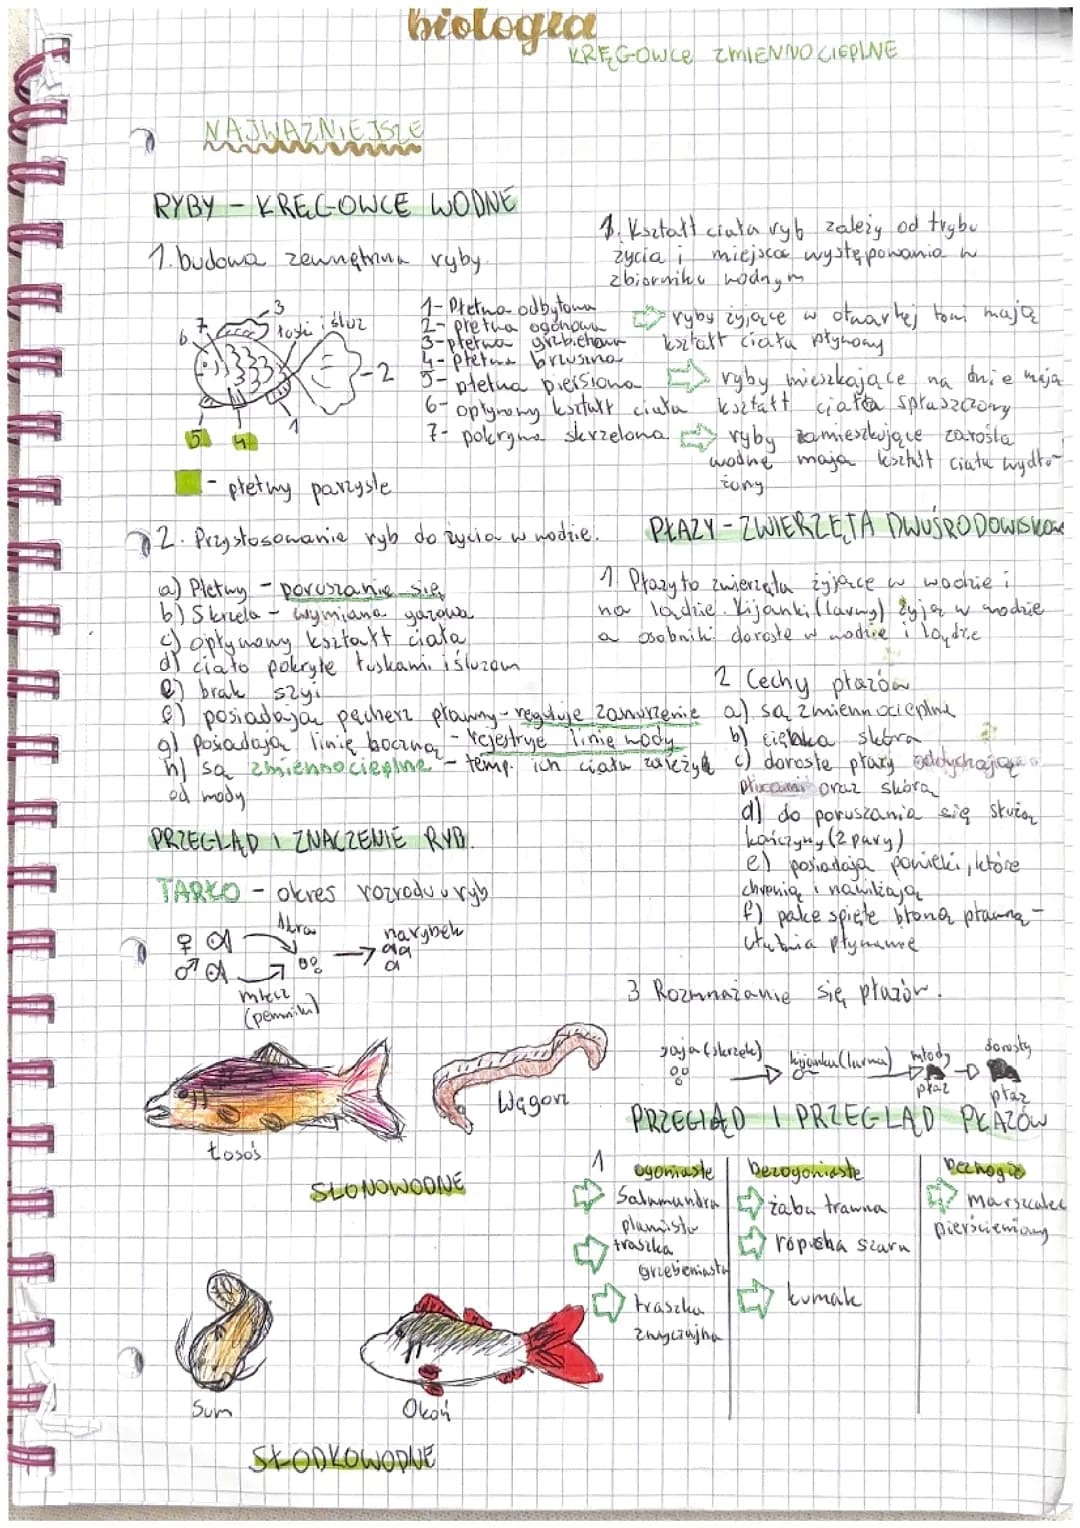 biologia
KRĘGOWCE ZMIENNOCIEPLNE
NAJWAŻNIEJSZE
RYBY - KRĘGOWCE WODNE
1. budowa zewnętrzna ryby
3
7
6
łuski i śluz
2
1
5
4
- płetwy parzyste
1- Płetwa odbytowa
2- płetwa ogonowa
3- płetwa grzbietowa
4- płetwa brzuszna
5- płetwa piersiowa
6- opływowy kształt ciała
7- pokrywa skrzelowa
3. Kształt ciała ryb zależy od trybu
życia i miejsca występowania w
zbiorniku wodnym
ryby żyjące w otwartej toni mają
kształt ciała opływowy
ryby mieszkające na dnie mają
kształt ciała spłaszczony
ryby zamieszkujące zarośla
wodne mają kształt ciała wydłu-
żony
2. Przystosowanie ryb do życia w wodzie.
a) Płetwy - poruszanie się
b) Skrzela - wymiana gazowa
c) opływowy kształt ciała
d) ciało pokryte łuskami i śluzem
e) brak szyi
f) posiadają pęcherz pławny - reguluje zanurzenie
g) posiadają linię boczną - rejestruje linię wody
h) są zmiennocieplne - temp. ich ciała zależy
od wody
PRZEGLĄD I ZNACZENIE RYB.
TARŁO - okres rozrodu u ryb
♀
ikra
narybek
♂
mlecz
(plemniki)
łosoś
Węgorz
SŁONOWODNE
Sum
Okoń
SŁODKOWODNE
PŁAZY - ZWIERZĘTA DWUŚRODOWISKOWE
1. Płazy to zwierzęta żyjące w wodzie i
na lądzie. Kijanki (larwy) żyją w wodzie
a osobniki dorosłe w wodzie i lądzie
2 Cechy płazów
a) są zmiennocieplne
b) cienka skóra
c) dorosłe płazy oddychają
płucami oraz skórą
d) do poruszania się służą
kończyny (2 pary)
e) posiadają powieki, które
chronią i nawilżają
f) palce spięte błoną pławną -
ułatwia pływanie
3 Rozmnażanie się płazów.
jaja (skrzek)
kijanka (larwa)
młody
płaz
dorosły
płaz
PRZEGLĄD I PRZEGLĄD PŁAZÓW
1
ogoniaste
Salamandra
plamista
traszka
grzebieniasta
traszka
zwyczajna
bezogoniaste
żaba trawna
ropucha szara
kumak
beznogie
marszczelec
pierścieniowy